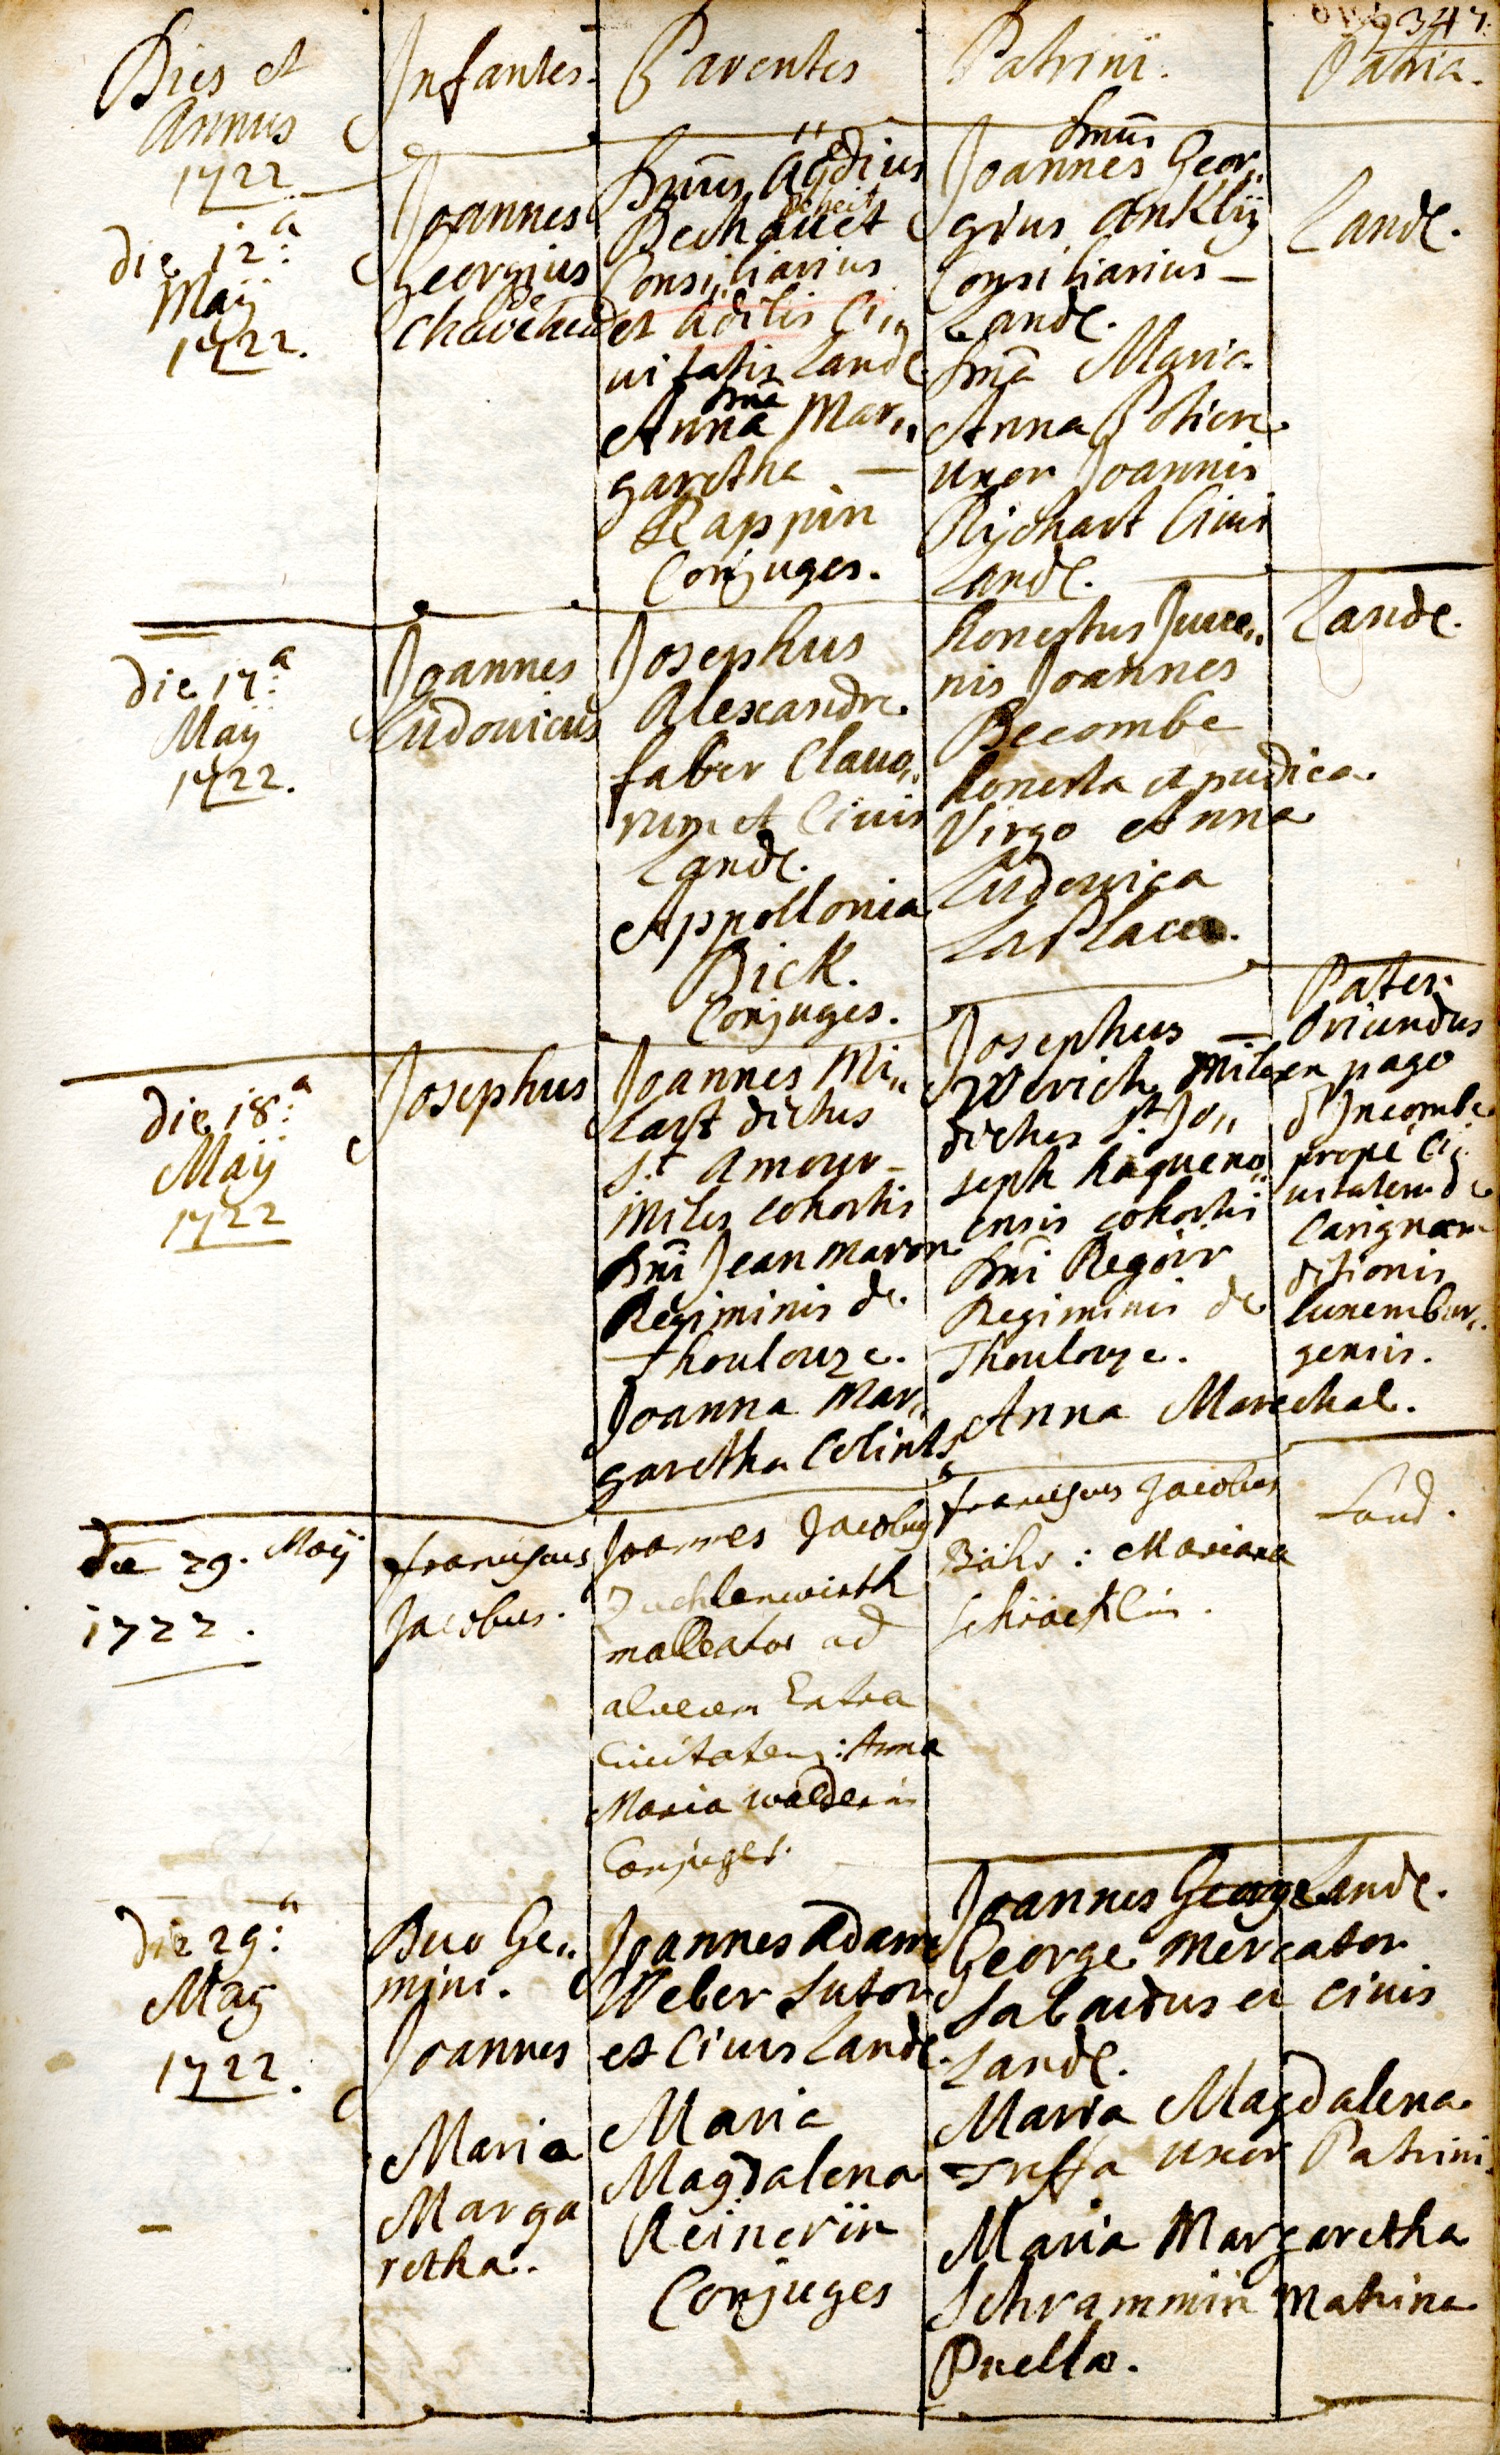 347.
Dies et
Annus
1722
Infantes.
Parentes
Patrini.
Patria.
die 12:a
Maij
1722.
Joannes
Georgius
de
Dnus Ägidius
Bechauet
Consiliarius
et Ädilis Ci„
uitatis Landc.
Dna
Anna Mar„
garetha —
Rappin
Conjuges.
Dnus
Joannes Geor„
gius Anklij
Consiliarius —
Landc.
Dna Maria
Anna Potiere
uxor Joannis
Rijchart Ciuis
Landc.
Landc.
die 17:a
Maij
1722.
Joannes
Ludouicus
Josephus
Alexandre
faber Clauo„
rum et Ciuis
Landc.
Appollonia
Bick.
Conjuges.
honestus Juue„
nis Joannes
Becombe
honesta et pudica
Virgo Anna
Ludouica
LaPlace.
Landc.
die 18:a
Maij
1722
Josephus
Joannes Mi„
dictus
St. Amour —
Miles cohortis
Dni Jean Maron
Regiminis de
Thoulouze.
Joanna Mar„
garetha Colints
Josephus —
Werich Miles
dictus St. Jo„
seph hagueno„
ensis cohortis
Dni Regoir
Regiminis de
Thoulouze.
Anna Marechal.
Pater
Oriundus
ex pago
d'Incombe
propè Ci„
uitatem de
Carignan
ditionis
luxembur„
gensis.
die 29. Maij
1722.
franciscus
Jacobus.
Joannes Jacobus
malleator ad
alueum Extra
Ciuitatem: Anna
Maria walderin
Conjuges.
franciscus Jacobus
Bähr: Mariana
schröcklin.
Land.
die 29:a
Maij
1722.
Duo Ge„
mini.
Joannes
Maria
Marga
retha.
Joannes Adam
Weber Sutor
et Ciuis Landc.
Maria
Magdalena
Reinerin
Conjuges
Joannes George
George Mercator
Sabaudus et Ciuis
Landc.
Maria Magdalena
Treffa uxor Patrini.
Maria Margaretha
Schrammin Matrina
Puellae.
Landc.